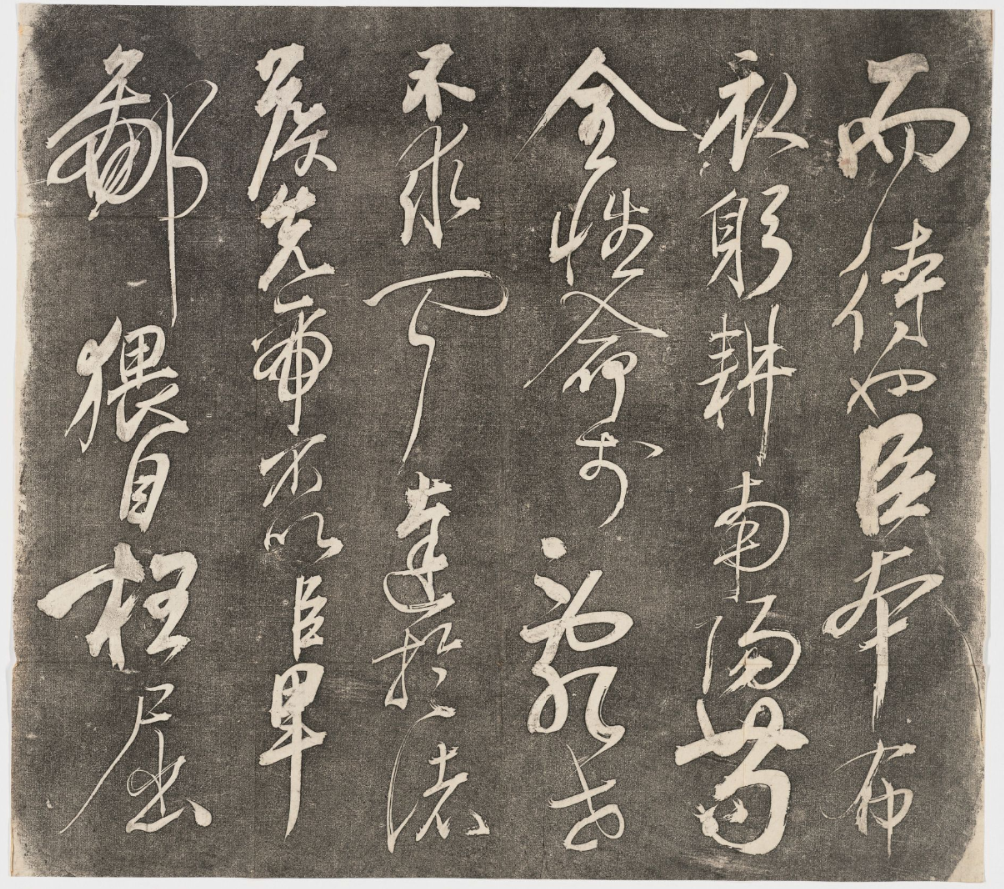 而待也臣本布
衣躬耕南陽茍
全性命於亂世
不求聞達於諸
侯先帝不以臣卑
鄙猥自枉屈